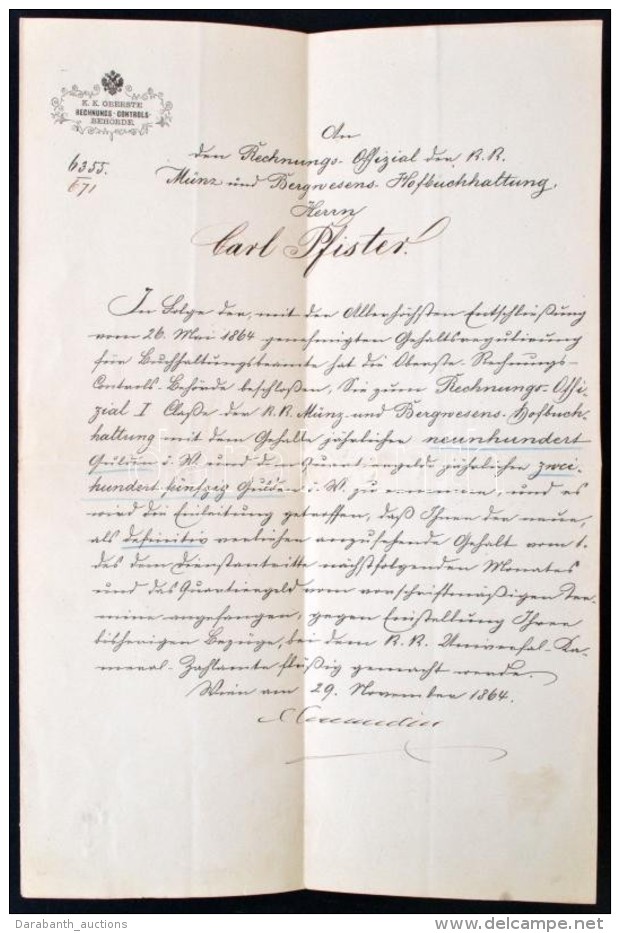 K. K. OBERSTE
RECHNUNGS-CONTROLS-
BEHÖRDE.
6355.
671
An
den Rechnungs-Offizial der K. K.
Münz und Bergwesens-Hofbuchhaltung,
Herrn
Carl Pfister.
In Folge der, mit der Allerhöchsten Entschließung
vom 26. Mai 1864 genehmigten Gehaltsregulirung
für Buchhaltungsbeamte hat die Oberste Rechnungs-
Controls-Behörde beschloßen, Sie zum Rechnungs-Offi-
zial I Claße der K. K. Münz- und Bergwesens-Hofbuch-
haltung mit dem Gehalte jährlicher neunhundert
Gulden ö. W. und dem Quartiergelde jährlicher zwei-
hundert fünfzig Gulden ö. W. zu ernennen, und es
wird die Einleitung getroffen, daß Ihnen der neue,
als definitiv verliehen anzusehende Gehalt vom 1.
des dem Dienstantritte nächstfolgenden Monates
und das Quartiergeld vom vorschriftmäßigen Ter-
mine angefangen, gegen Einstellung Ihrer
bisherigen Bezüge, bei dem K. K. Universal-Ka-
meral-Zahlamte flüßig gemacht werde.
Wien am 29. November 1864.
Darabanth_auctions
http://www.delcampe.net